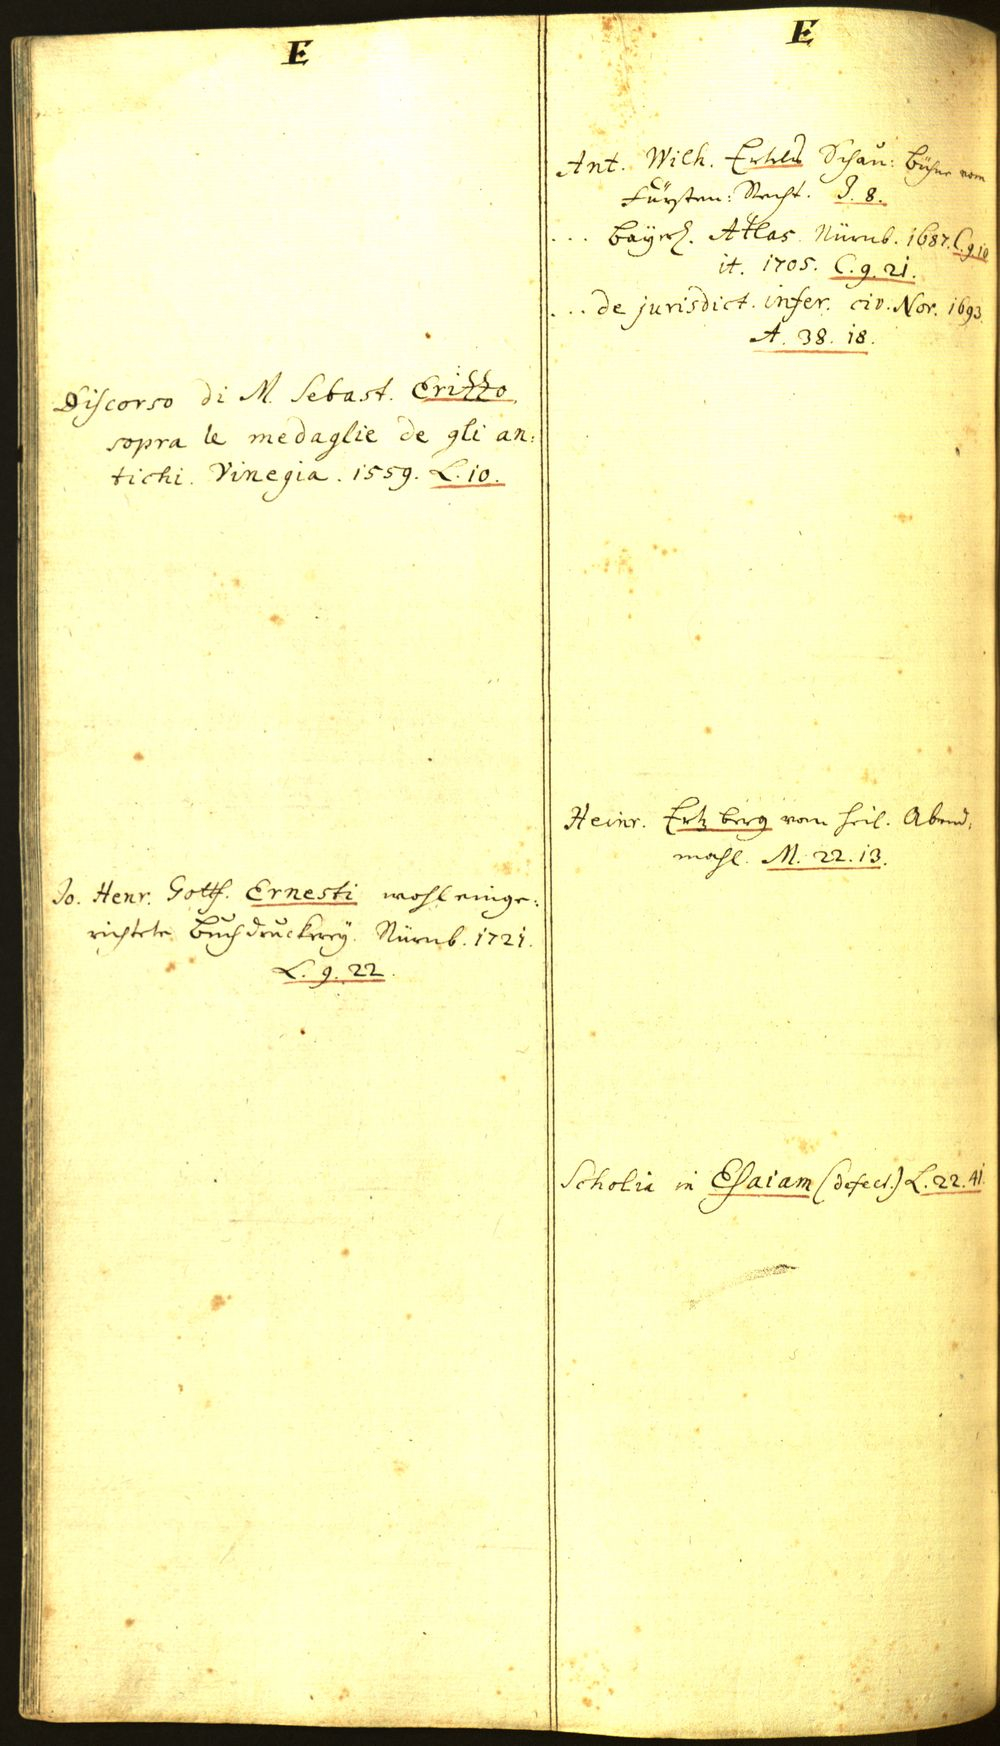 E
Discorso di M. Sebast. Erizzo,
sopra le medaglie de gli an:
tichi. Vinegia. 1559. L. 10.
Jo. Henr. Gottf. Ernesti wohl einge:
richtete Buchdruckerey. Nürnb. 1721.
L. 9. 22.
E
Ant. Wilh. Ertels Schau: Bühne vom
Fürsten: Recht. J. 8.
... Bayer. Atlas. Nürnb. 1687. C. 9. 10
it. 1705. C. 9. 21.
... de jurisdict. infer. civ. Nor. 1693.
A. 38. 18.
Heinr. Ertzberg vom heil. Abend,
mahl. M. 22. 13.
Scholia in Esaiam (defect.) L. 22. 41.